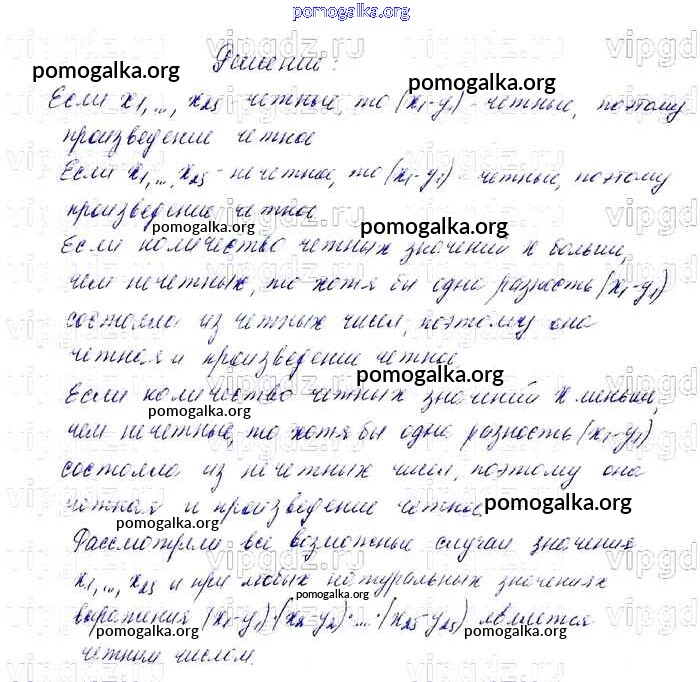 pomogalka.org
Решение:
pomogalka.org pomogalka.org
Если x1,..., x25 - четные, то (x1-y1) - четные, поэтому
произведение четное
Если x1,...,x25 - нечетное, то (x1-y1) - четные, поэтому
произведение четное.
pomogalka.org
Если количество четных значений x больше,
чем нечетных, то хотя бы одна разность (x1-y1)
состояла из четных чисел, поэтому она
четная и произведение четное
pomogalka.org
Если количество четных значений x меньше,
pomogalka.org
чем нечетные, то хотя бы одна разность (x1-y1)
состояла из нечетных чисел, поэтому она
четная и произведение четное
pomogalka.org
pomogalka.org
Рассмотрели все возможные случаи значения
x1,..., x25 и при любых натуральных значениях
выражения (x1-y1)·(x2-y2)·...·(x25-y25) является
pomogalka.org pomogalka.org
четным числом.